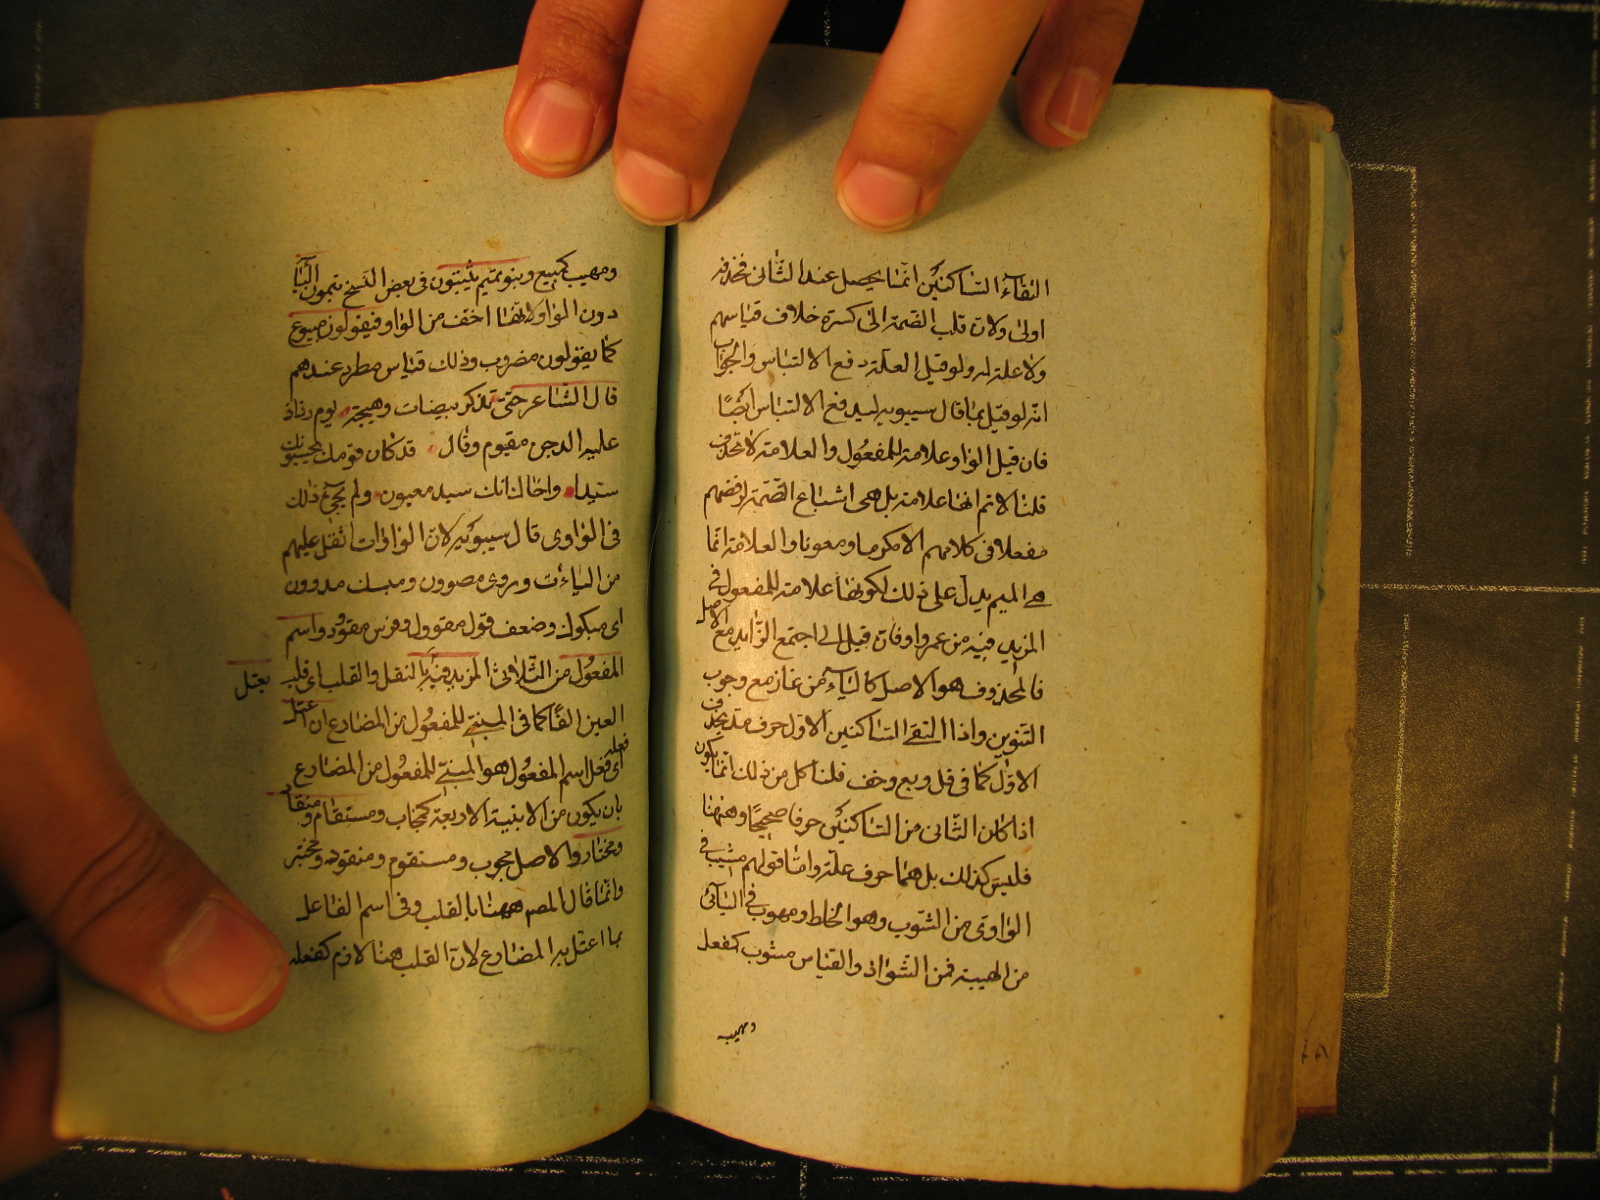 التقاء الساكنين انما يحصل عند الثانى فحذفه
اولى ولان قلب الضمة الى كسرة خلاف قياسهم
ولا علة له ولو قيل العلة دفع الالتباس والجواب
انه لو قيل بما قال سيبويه ليدفع الالتباس ايضا
فان قيل الواو علامة للمفعول والعلامة لا تحذف
قلنا لا نم انها علامة بل هى اشباع الضمة لرفضهم
مفعلا فى كلامهم الا مكرما ومعونا والعلامة انما
هى الميم يدل على ذلك كونها علامة للمفعول فى
المزيد فيه من غير واو فان قيل اذا اجتمع الزايد مع الاصل
فالمحذوف هو الاصل كالياء من غاز مع وجوب
التنوين واذا التقى الساكنين الاول حرف مد يحذف
الاول كما فى قل وبع وخف قلنا كل من ذلك انما يكون
اذا كان الثانى من الساكنين حرفا صحيحا وههنا
فليس كذلك بل هما حرف علة واما قولهم مشيب فى
الواوى من الشوب وهو الخلط ومهوب فى اليائى
من الهيبة فمن الشواذ والقياس مشوب كفعل
ومهيبه
ومهيب كمبيع وبنو تميم يثبتون فى بعض النسخ يتمون الياء
دون الواو لانها اخف من الواو فيقولون مبيوع
كما يقولون مضروب وذلك قياس مطرد عندهم
قال الشاعر حتى تذكر بيضات وهيجه يوم رذاذ
عليه الدجن مغيوم وقال قد كان قومك يحسبونك
سيدا واخال انك سيد معيون ولم يجئ ذلك
فى الواوى قال سيبويه لان الواوات اثقل عليهم
من الياءات وروى مصوون ومسك مدووف
اى مبلول وضعف قول مقوول وفرس مقوود واسم
المفعول من الثلاثى المزيد فيه بالنقل والقلب اى قلب يعتل
العين الفا كما فى المبنى للمفعول من المضارع ان اعتل
اى فعل اسم المفعول هو المبنى للمفعول من المضارع فعله
بان يكون من الابنية الاربعة كمجاب ومستقام ومنقاد
ومختار والاصل مجوب ومستقوم ومنقود ومختير
وانما قال المصـ ههنا بالقلب وفى اسم الفاعل
بما اعتل به المضارع لان القلب هنا لازم كفعله